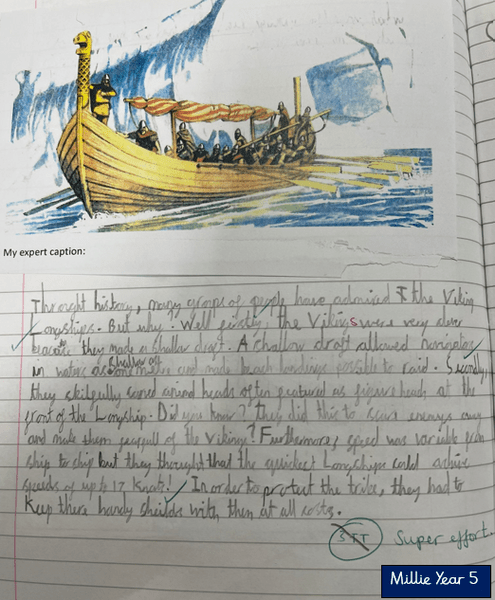 My expert caption:
Throught history, many groups of people have admired the Viking
Longships. But why. Well firstly, the Vikings were very clever
because they made a shallar draft. A shallow draft allowed navigation
in waters as shallow as one meter and made beach landings possible to raid. Secondly
they skilfully carved animal heads often featured as figure heads at the
front of the Longship. Did you know? they did this to scare enemys away
and make them fearfull of the Vikings! Furthermore, speed was variable from
ship to ship but they thought that the quickest Longships could achive
speeds of up to 17 knots! In order to protect the tribe, they had to
Keep there handy sheilds with them at all costs.
3 TT Super effort.
Millie Year 5